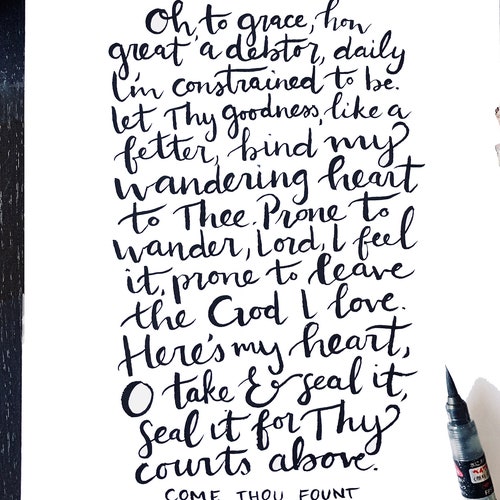 Oh, to grace, how
great a debtor, daily
I'm constrained to be.
let Thy goodness, like a
fetter, bind my
wandering heart
to Thee. Prone to
wander, Lord, I feel
it, prone to leave
the God I love.
Here's my heart,
O take & seal it,
seal it for Thy
courts above.
COME THOU FOUNT